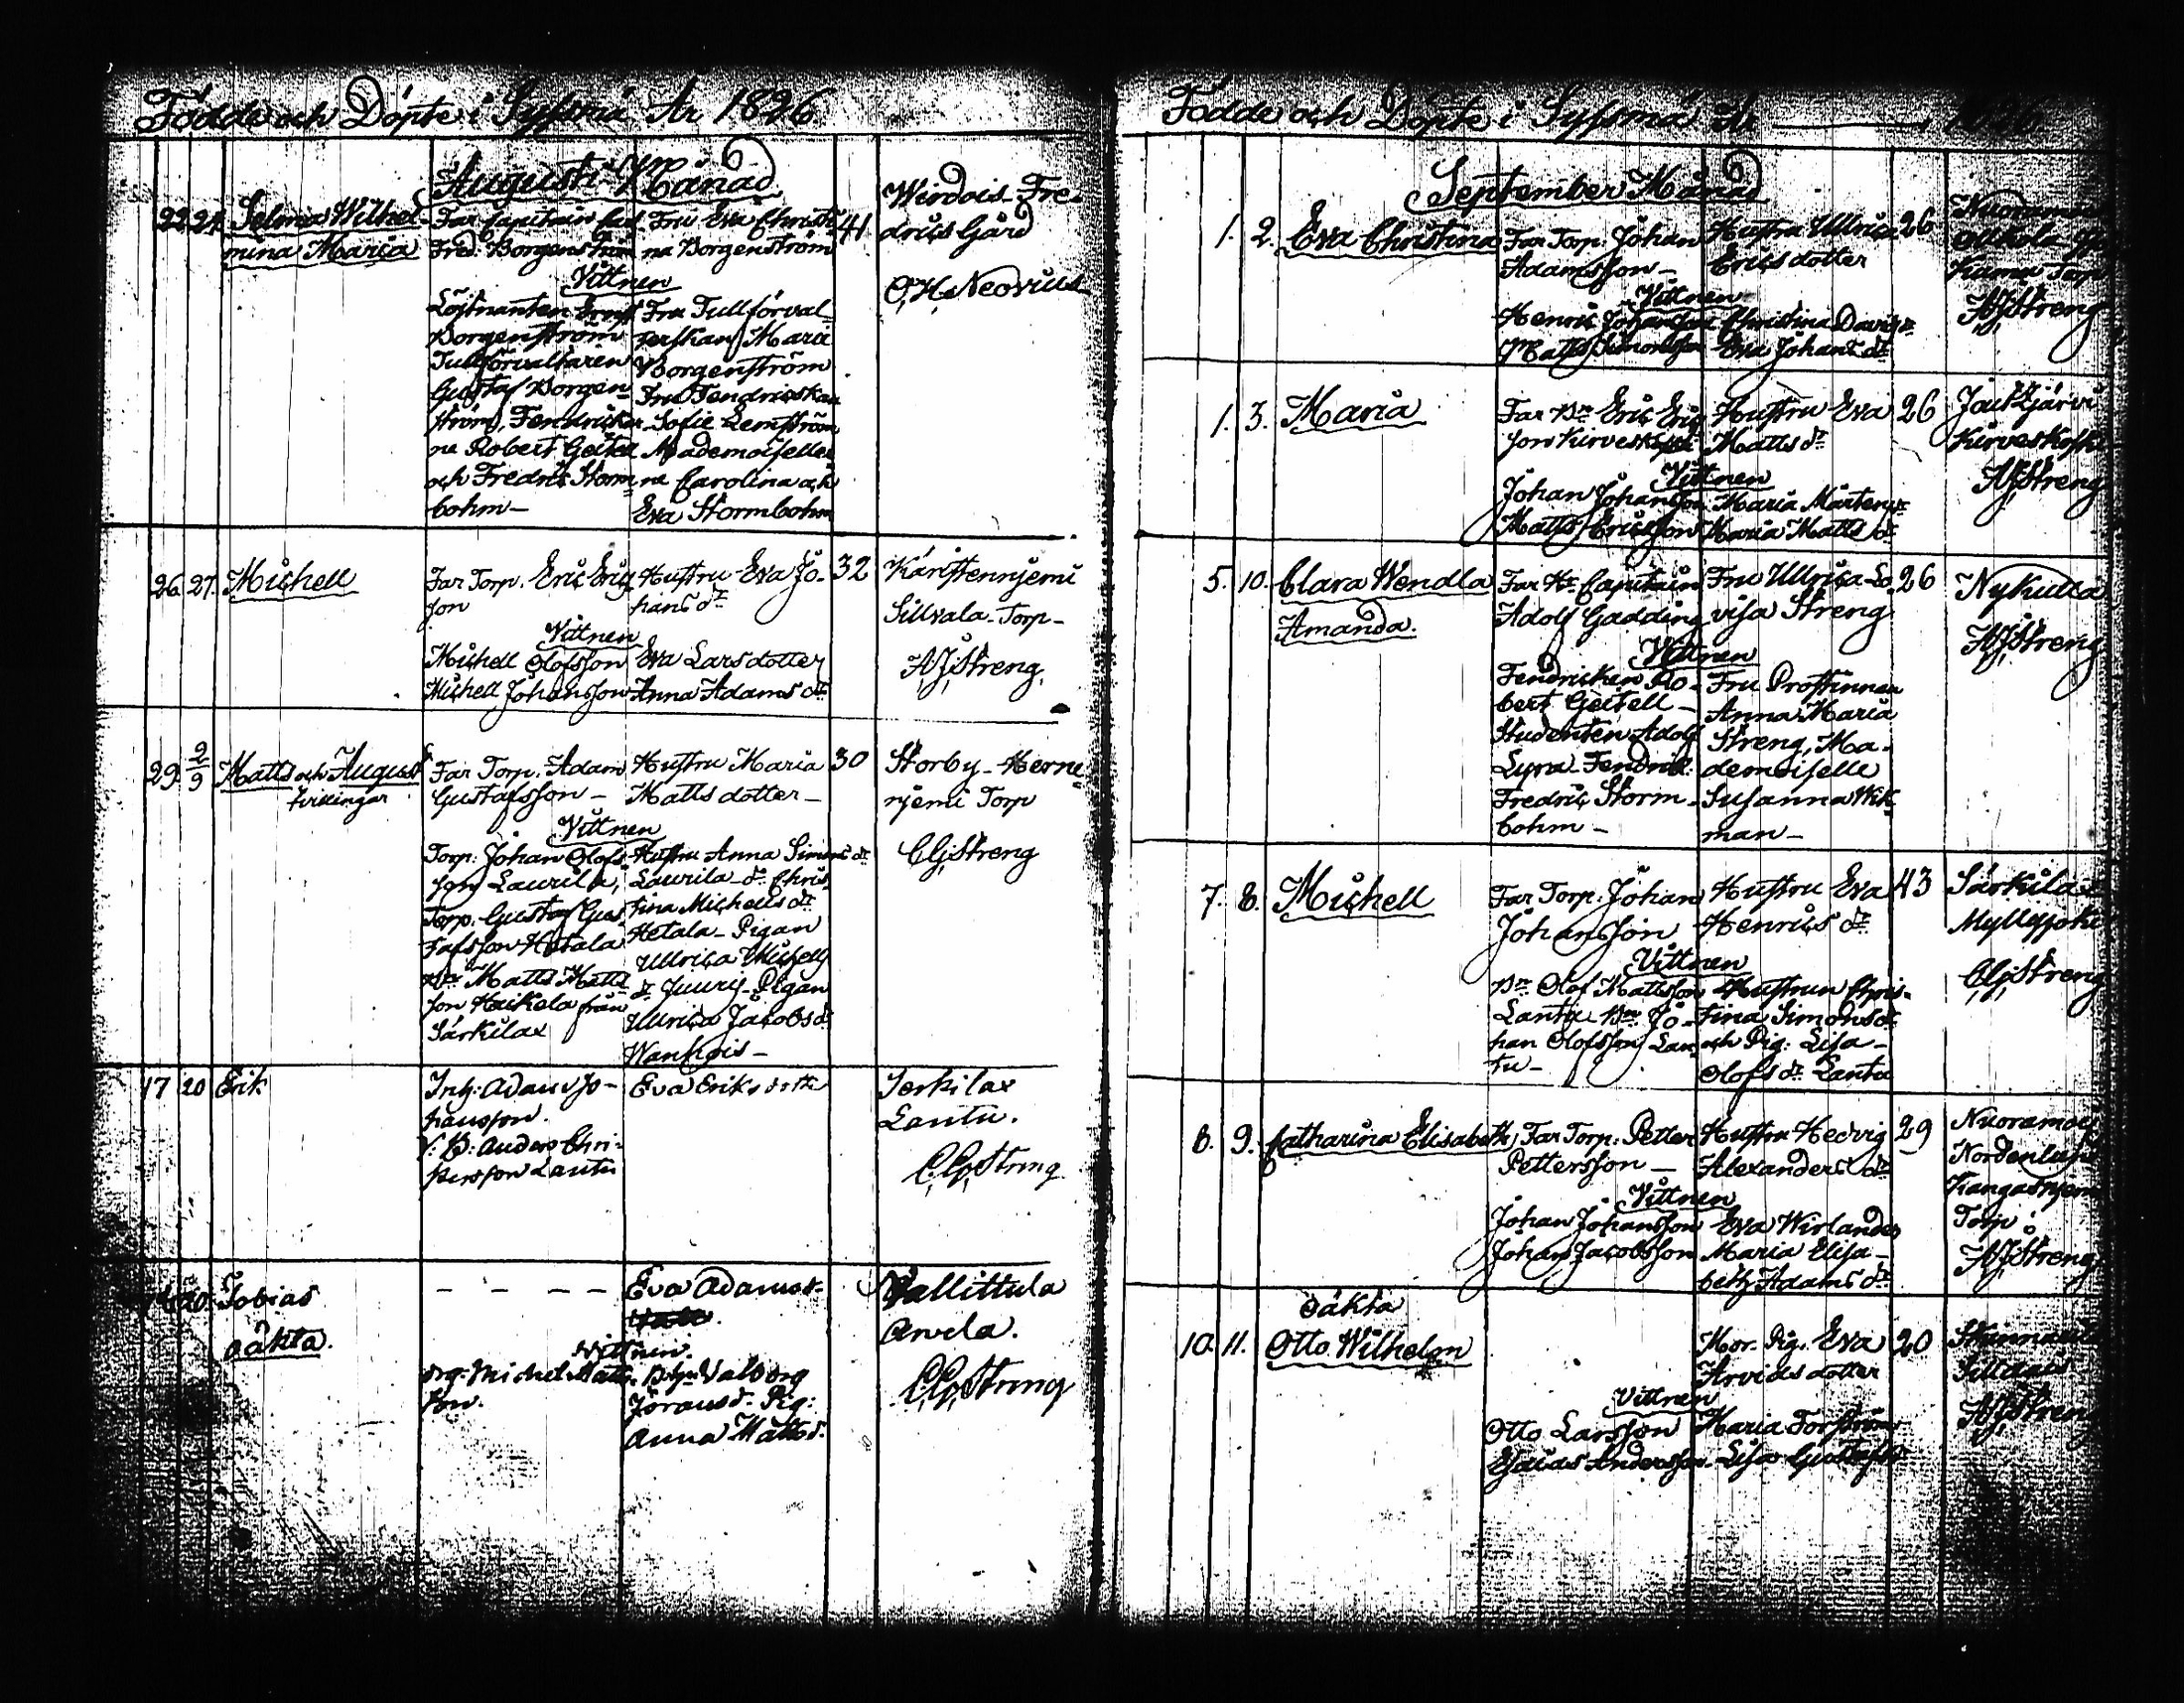 Födde och Döpte i Syssmä År 1826
Augusti Månad
22. 24. Selma Wilhel-
mina Maria
Far Capitain Carl
Fred. Borgenström
Fru Eva Christi-
na Borgenström
41
Wirdois Fre-
drics Gård
C.H. Neovius
Vittnen
Löjtnanten Ernst
Borgenström
Tullförvaltaren
Gustaf Borgen-
ström, Fendricker-
ne Robert Geitel
och Fredric Storm-
bohm
Fru Tullförval-
terskan Maria
Borgenström
Fru Fendricskan
Sofie Lemström
Mademoiseller-
ne Carolina och
Eva Stormbohm
26. 27. Michell
Far Torp. Eric Erics
son
Hustru Eva Jo-
hans dr
32
Karistenniemi
Sillvala Torp
A.J. Streng.
Vittnen
Michell Olofsson
Michell Johansson
Eva Larsdotter
Anna Adams dr
29. 2/9 Matts och August
tvillingar
Far Torp. Adam
Gustafsson
Hustru Maria
Mattsdotter
30
Storby Herne
njemi Torp
C.G. Streng
Vittnen
Torp. Johan Olofs-
son Laurila,
Torp. Gustaf Gus-
tafsson Hetala
Bn Matts Matts
son Heikela från
Särkilax
Hustru Anna Simons dr
Laurila dr Chris-
tina Michells dr
Hetala Pigan
Ullrica Michells
dr Juurij Pigan
Ullrica Jacobs dr
Wanhois
17 20 Erik
Inh: Adam Jo-
hansson.
V. B: Anders Chri-
stersson Lantu
Eva Eriks dotter
Serkilax
Lantu.
C.G. Streng
20. Tobias
oäkta.
- - - -
Eva Adamsd.
Pallittula
Arvela.
C.G. Streng
Vittnen.
Drg. Michel Matts-
son.
Valborg
Jöransd. Pig:
Anna Mattsd.
Födde och Döpte i Syssmä År 1826
September Månad
1. 2. Eva Christina
Far Torp. Johan
Adamsson
Hustru Ullrica
Erics dotter
26
Nuoramois
Torp
A.J. Streng
Vittnen
Henric Johansson
Matts Simonsson
Christina Davids dr
Eva Johans dr
1. 3. Maria
Far Bn Eric Eric
son Kirveskoski
Hustru Eva
Matts dr
26
Joutsjärvi
Kirveskoski
A.J. Streng
Vittnen
Johan Johansson
Matts Ericsson
Maria Mårtens dr
Maria Matts dr
5. 10. Clara Wendla
Amanda.
Far Hr Capitain
Adolf Gadding
Fru Ullrica Lo-
visa Streng
26
Nykulla
A.J. Streng
Vittnen
Fendricken Ro-
bert Geitell
Studenten Adolf
Lyra Fendrik
Fredric Storm-
bohm
Fru Prostinnan
Anna Maria
Streng, Ma-
demoiselle
Susanna Wik-
man
7. 8. Michell
Far Torp. Johan
Johansson
Hustru Eva
Henrics dr
43
Särkilax
Myllyjoki
C.G. Streng
Vittnen
Bn Olof Mattsson
Lantu Bn Jo-
han Olofsson Lan-
tu
Hustrun Chris-
tina Simons dr
och Pig: Lisa
Olofs dr Lantu
8. 9. Catharina Elisabeth
Far Torp: Petter
Pettersson
Hustru Hedvig
Alexanders dr
29
Nuoramois
Nordenlund
Kangasniemi
Torp:
A.J. Streng
Vittnen
Johan Johansson
Johan Jacobsson
Eva Wirlander
Maria Elisa-
beth Adams dr
oäkta
10. 11. Otto Wilhelm
Mor. Pig. Eva
Arvids dotter
20
A.J. Streng
Vittnen
Otto Larsson
Esaias Andersson
Maria Forström
Lisa Gustafs dr